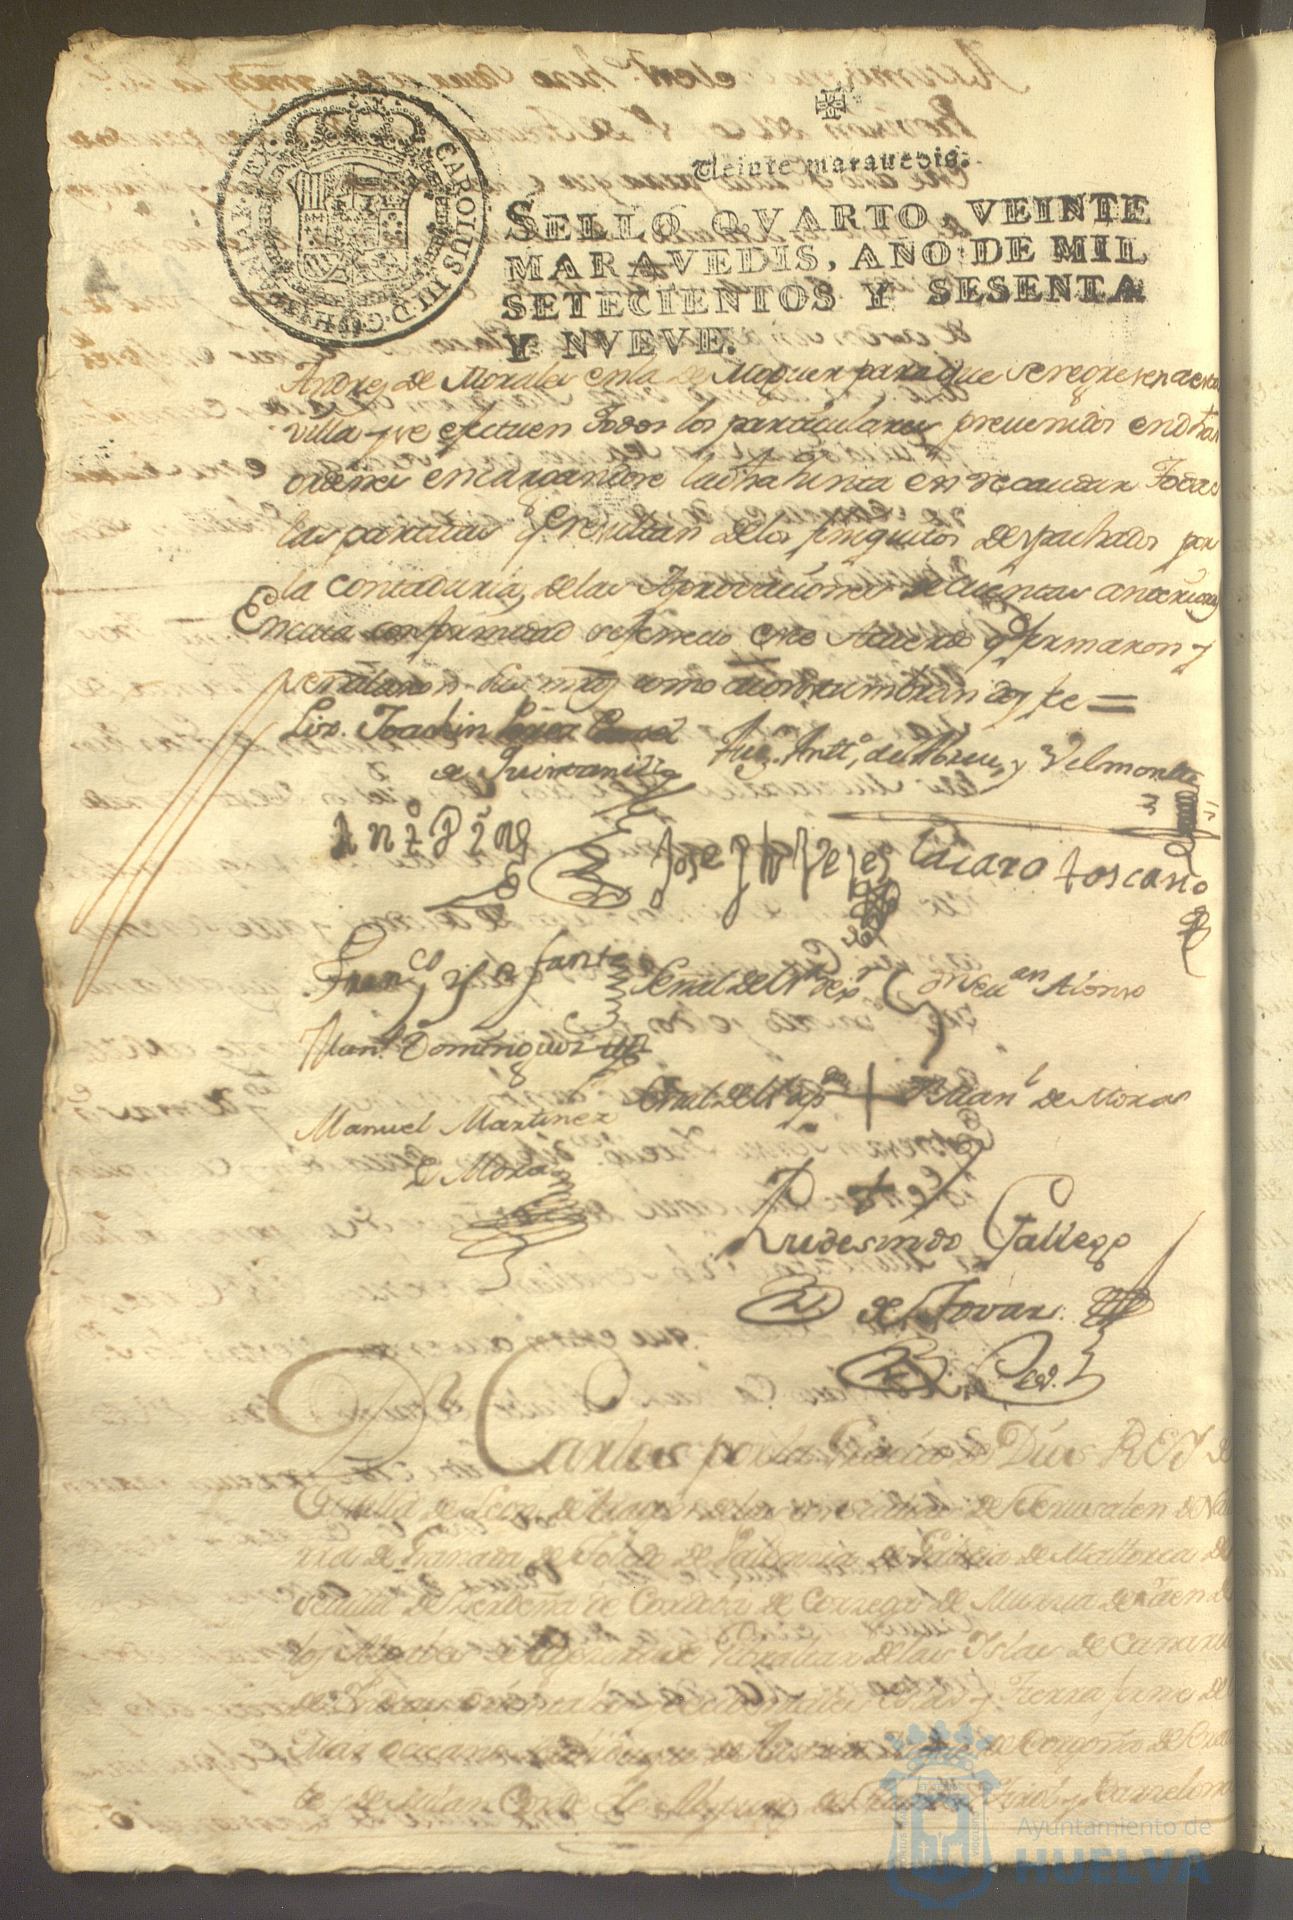 CAROLUS III D G HISPANIAR REX
Veinte marauedis.
SELLO QVARTO, VEINTE
MARAVEDIS, AÑO DE MIL
SETECIENTOS Y SESENTA
Y NVEVE.
Andres de Morales en la de Moguer para que se regresen a esta
villa y se efectuen todos los particulares prevenidos en dhas
ordenes encargandose la dha Junta en recaudar todas
las partidas q resultan de los finiquitos despachados por
la contaduria, de las Aprovaciones de cuentas anteriores
En cuia conformidad se fenecio este Acuerdo q firmaron y
señalaron sus mrds como acostumbran doy fe =
Lizdo. Joachin
de Quintanilla
Antt. de Abreu, y Velmonte
Jose Lazaro toscano
Franco ynfante
Señal de Alonso
Manl. Dominguez
Señal de + Manl de Mora
Manuel Martinez
de Mora
Rudesindo Gallego
de Tovar.
Esno.
Dn Carlos por la Gracia de Dios REY de
Castilla de Leon de Aragon de las dos Sicilias de Jerusalen de Na
rra de Granada de Toledo de Valencia de Galicia de Mallorca de
Sevilla de Cerdeña de Cordova de Corzega de Murzia de Jaen de
los Algarbes de Algecira de Gibraltar de las Islas de Canaria
de Indias orientales y occidentales Islas y Tierra firme del
Mar occeano Archiduque de Austria Duque de Borgoña de Brava
te y de Milan Conde de Abspurg de Flandes Tirol y Barcelona
Ayuntamiento de
HUELVA